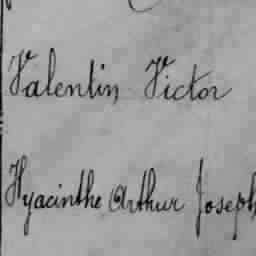 Valentin Victor
Hyacinthe Arthur Joseph